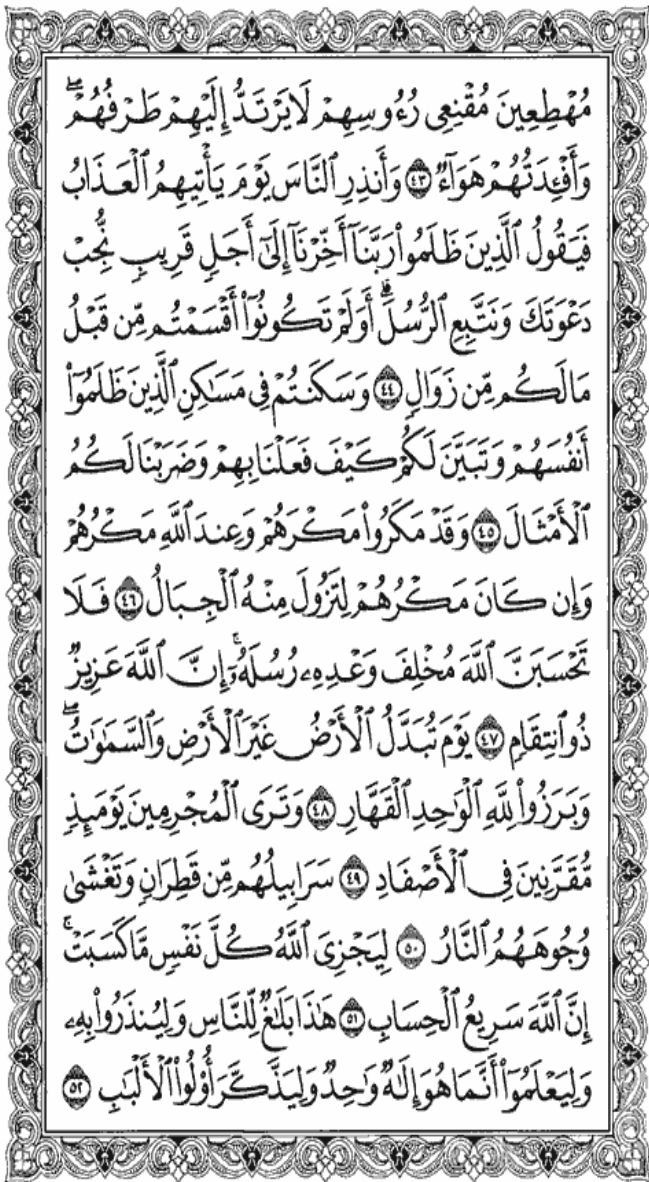 مُهْطِعِينَ مُقْنِعِى رُءُوسِهِمْ لَا يَرْتَدُّ إِلَيْهِمْ طَرْفُهُمْ ۖ
وَأَفْـِٔدَتُهُمْ هَوَآءٌ ۝٤٣ وَأَنذِرِ ٱلنَّاسَ يَوْمَ يَأْتِيهِمُ ٱلْعَذَابُ
فَيَقُولُ ٱلَّذِينَ ظَلَمُوا۟ رَبَّنَآ أَخِّرْنَآ إِلَىٰٓ أَجَلٍ قَرِيبٍ نُّجِبْ
دَعْوَتَكَ وَنَتَّبِعِ ٱلرُّسُلَ ۗ أَوَلَمْ تَكُونُوٓا۟ أَقْسَمْتُم مِّن قَبْلُ
مَا لَكُم مِّن زَوَالٍ ۝٤٤ وَسَكَنتُمْ فِى مَسَـٰكِنِ ٱلَّذِينَ ظَلَمُوٓا۟
أَنفُسَهُمْ وَتَبَيَّنَ لَكُمْ كَيْفَ فَعَلْنَا بِهِمْ وَضَرَبْنَا لَكُمُ
ٱلْأَمْثَالَ ۝٤٥ وَقَدْ مَكَرُوا۟ مَكْرَهُمْ وَعِندَ ٱللَّهِ مَكْرُهُمْ
وَإِن كَانَ مَكْرُهُمْ لِتَزُولَ مِنْهُ ٱلْجِبَالُ ۝٤٦ فَلَا
تَحْسَبَنَّ ٱللَّهَ مُخْلِفَ وَعْدِهِۦ رُسُلَهُۥٓ ۗ إِنَّ ٱللَّهَ عَزِيزٌ
ذُو ٱنتِقَامٍ ۝٤٧ يَوْمَ تُبَدَّلُ ٱلْأَرْضُ غَيْرَ ٱلْأَرْضِ وَٱلسَّمَـٰوَٰتُ ۖ
وَبَرَزُوا۟ لِلَّهِ ٱلْوَٰحِدِ ٱلْقَهَّارِ ۝٤٨ وَتَرَى ٱلْمُجْرِمِينَ يَوْمَئِذٍ
مُّقَرَّنِينَ فِى ٱلْأَصْفَادِ ۝٤٩ سَرَابِيلُهُم مِّن قَطِرَانٍ وَتَغْشَىٰ
وُجُوهَهُمُ ٱلنَّارُ ۝٥٠ لِيَجْزِىَ ٱللَّهُ كُلَّ نَفْسٍ مَّا كَسَبَتْ ۚ
إِنَّ ٱللَّهَ سَرِيعُ ٱلْحِسَابِ ۝٥١ هَـٰذَا بَلَـٰغٌ لِّلنَّاسِ وَلِيُنذَرُوا۟ بِهِۦ
وَلِيَعْلَمُوٓا۟ أَنَّمَا هُوَ إِلَـٰهٌ وَٰحِدٌ وَلِيَذَّكَّرَ أُو۟لُوا۟ ٱلْأَلْبَـٰبِ ۝٥٢